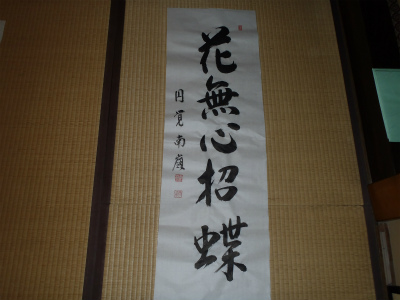 花無心招蝶
円覚南嶺